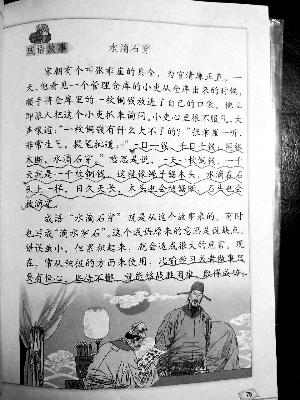 成语故事
水滴石穿
宋朝有个叫张乖崖的县令，为官清廉正直。一
天，他看见一个管理仓库的小吏从仓库出来的时候，
顺手将仓库里的一枚铜钱放进了自己的口袋。他立
即派人把这个小吏抓来审问。小吏心里很不服气，大
声嚷道：“一枚铜钱有什么大不了的？”张乖崖一听，
非常生气，提笔批道：“一日一钱，千日千钱；绳锯
木断，水滴石穿。”意思是说，一天一枚铜钱，一千
天就是一千枚铜钱。这就像绳子锯木头，水滴在石
头上一样，日久天长，木头也会被锯断，石头也会
被滴穿。
成语“水滴石穿”就是从这个故事来的。有时
也写成“滴水穿石”。这个成语原来的意思是说缺点、
错误虽小，但累积起来，就会造成很大的危害。现
在，常从积极的方面来使用，比喻学习或者做事只
要有恒心，坚持不懈，就能够战胜困难，取得成绩。